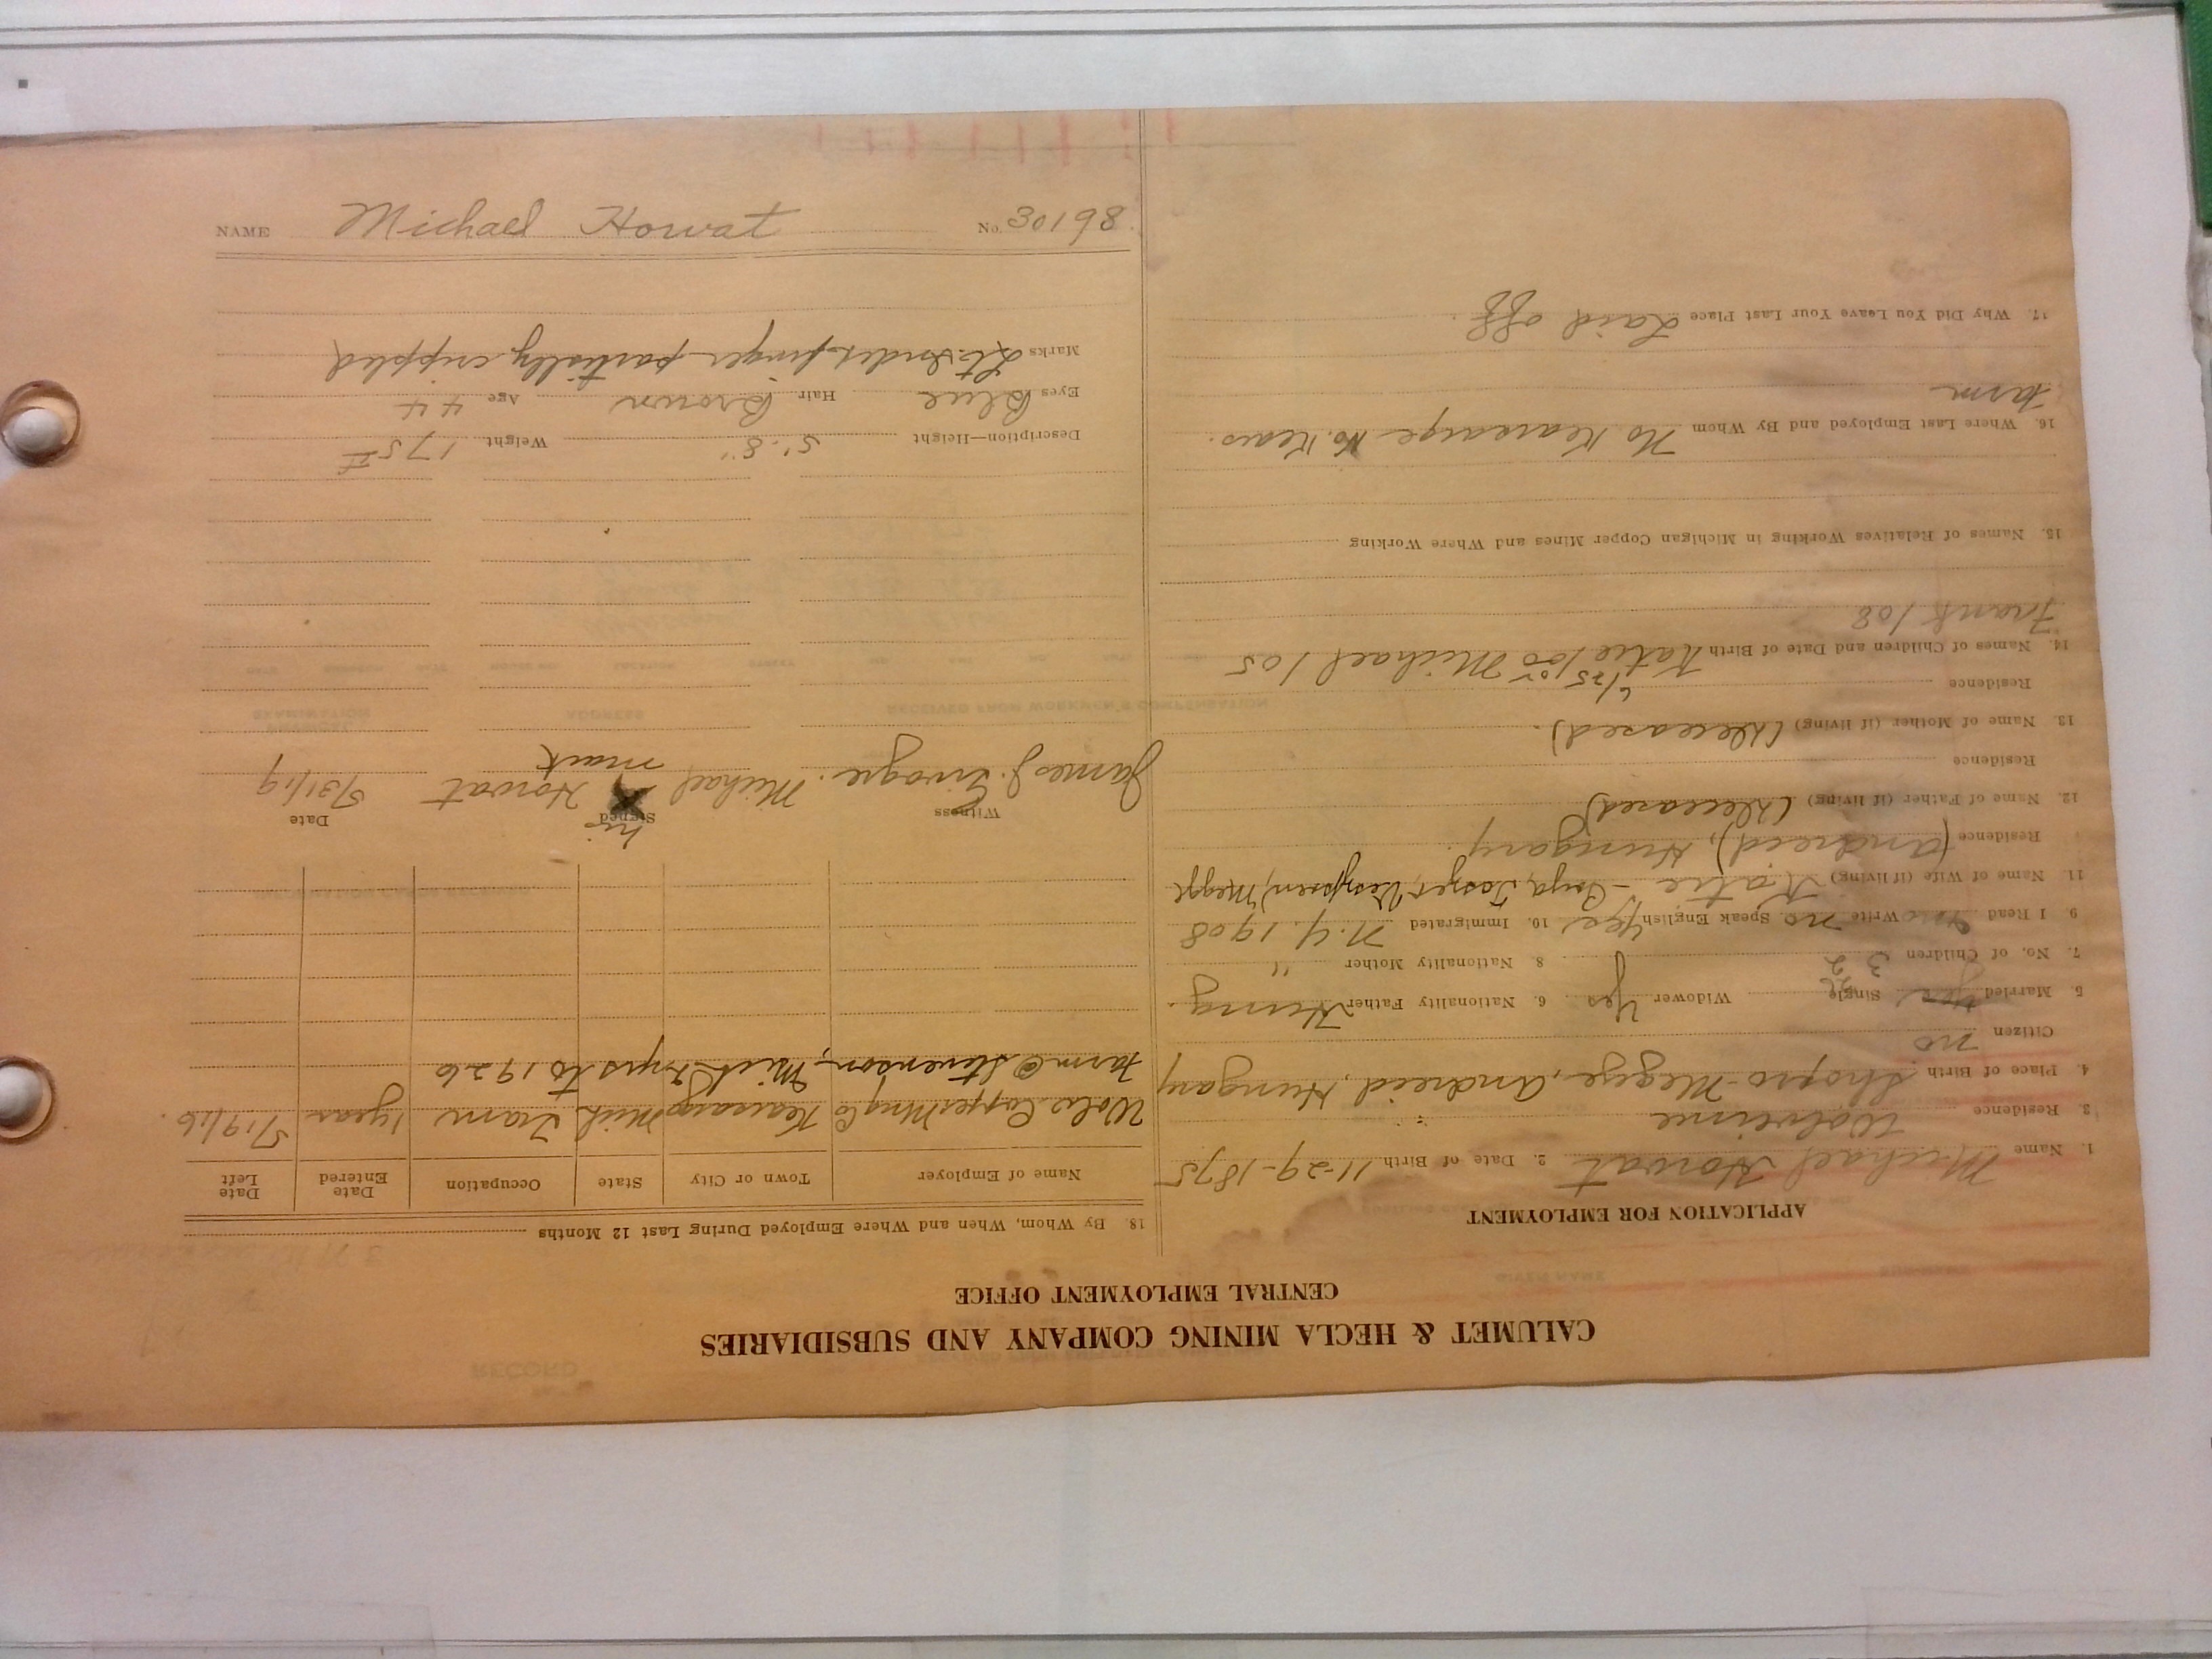 CALUMET & HECLA MINING COMPANY AND SUBSIDIARIES
CENTRAL EMPLOYMENT OFFICE
APPLICATION FOR EMPLOYMENT
1. Name Michael Horvat 2. Date of Birth 11-29-1875
3. Residence Wolverine
4. Place of Birth Shopro-Megye, Andreid, Hungary
Citizen no
5. Married yes Single Widower Yes 6. Nationality Father Hung.
7. No. of Children 3 2 8. Nationality Mother "
9. I Read no Write no Speak English Yes 10. Immigrated N.Y. 1908
11. Name of Wife (if living) Katie
Residence (Andreid), Hungary.
12. Name of Father (if living) (Deceased)
Residence
13. Name of Mother (if living) (Deceased).
Residence
14. Names of Children and Date of Birth Katie / 00 Michael / 05
Frank / 08
15. Names of Relatives Working in Michigan Copper Mines and Where Working
16. Where Last Employed and By Whom No Kearsarge No. Kears.
farm
17. Why Did You Leave Your Last Place Laid off
18. By Whom, When and Where Employed During Last 12 Months
Name of Employer Town or City State Occupation Date Entered Date Left
Wolv. Copper Mng Co Kearsarge Mich Tram 1 year 5/19/26.
Farm @ Stevenson, Mich 7 yrs to 1926
Witness Signed Date
his
James J. Michael X Horvat 5/31/19
mark
Description—Height 5'-8" Weight 175#
Eyes Blue Hair Brown Age 44
Marks Lt. Index finger partially crippled
NAME Michael Horvat No. 30198